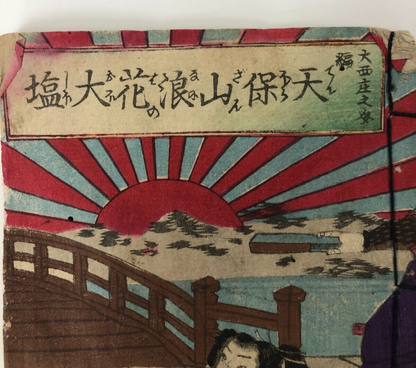 大西庄之助
編
天保山浪花の大塩